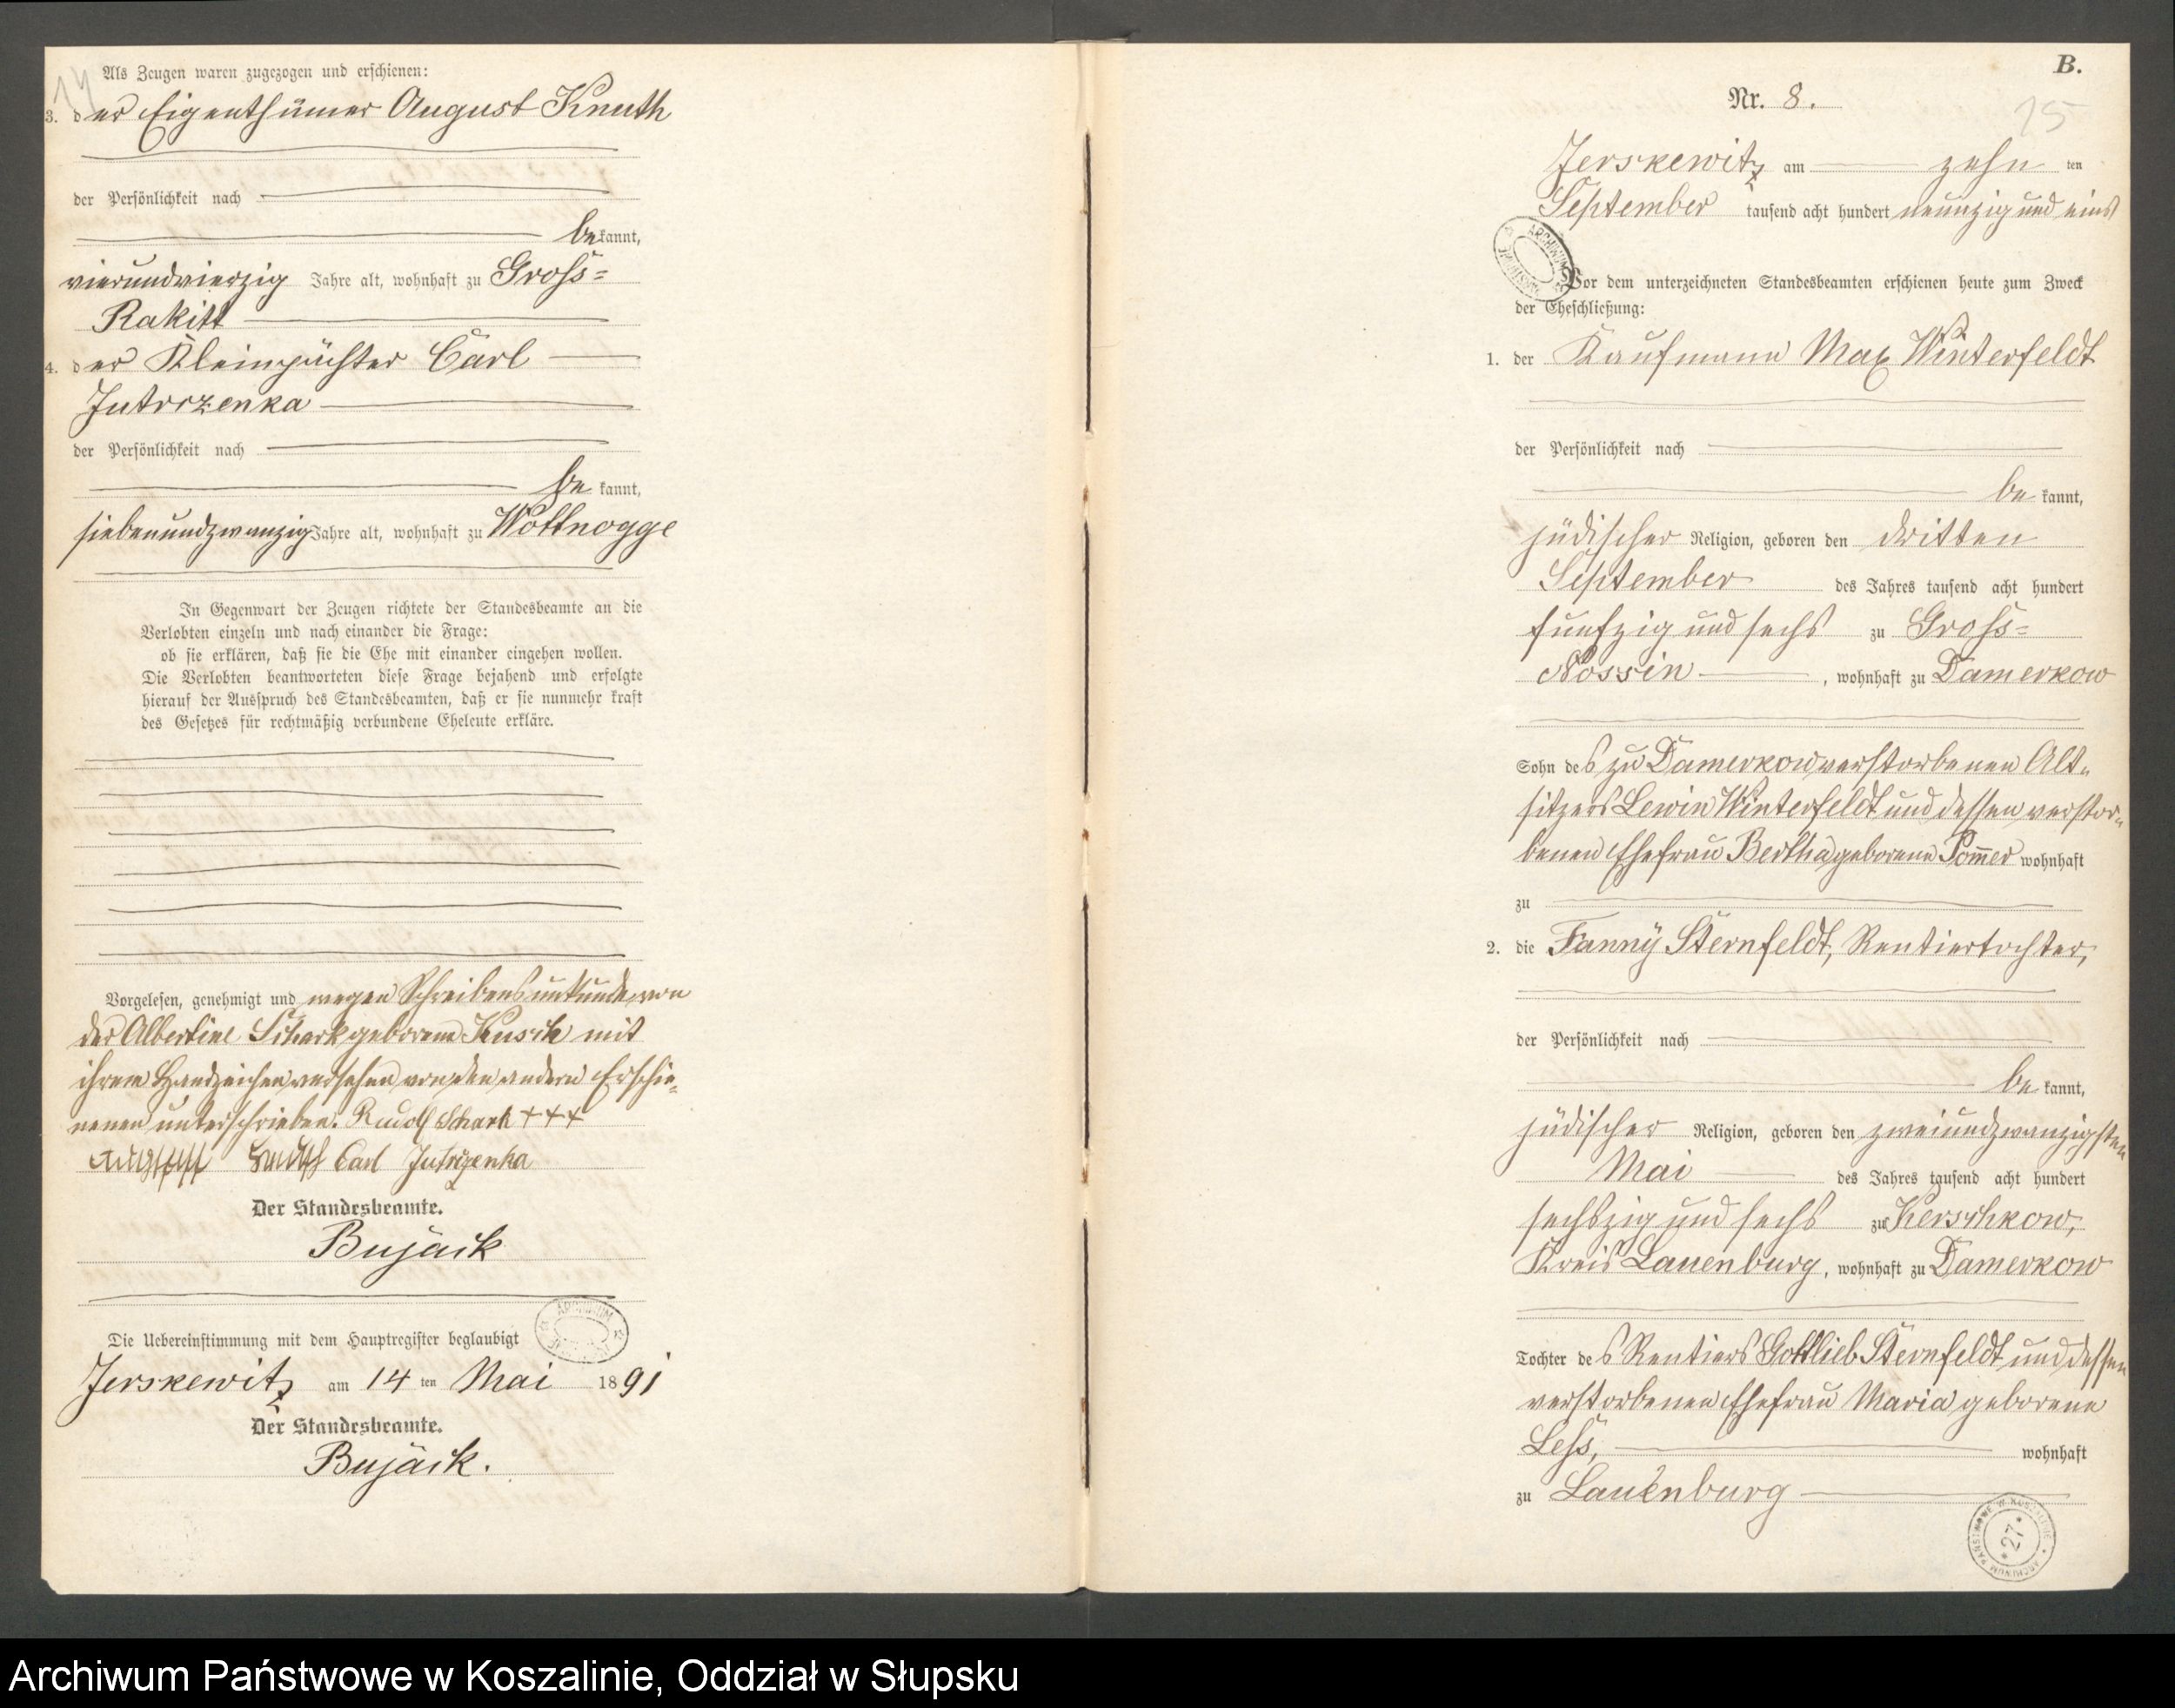 14
Als Zeugen waren zugezogen und erschienen:
3. der Eigenthümer August Knuth
der Persönlichkeit nach
bekannt,
vierundvierzig Jahre alt, wohnhaft zu Gross=
Rakitt
4. der Kleinpächter Carl
Jutrzenka
der Persönlichkeit nach
be kannt,
siebenundzwanzig Jahre alt, wohnhaft zu Wottnogge
In Gegenwart der Zeugen richtete der Standesbeamte an die
Verlobten einzeln und nach einander die Frage:
ob sie erklären, daß sie die Ehe mit einander eingehen wollen.
Die Verlobten beantworteten diese Frage bejahend und erfolgte
hierauf der Ausspruch des Standesbeamten, daß er sie nunmehr kraft
des Gesetzes für rechtmäßig verbundene Eheleute erkläre.
Vorgelesen, genehmigt und wegen Schreibensunkunde von
der Albertine geborene Kusch mit
ihrem Handzeichen versehen von den andern Erschie=
nenen unterschrieben. Rudolf +++
August Knuth Carl Jutrzenka
Der Standesbeamte.
Bujack
Die Uebereinstimmung mit dem Hauptregister beglaubigt
Jerskewitz am 14 ten Mai 1891
Der Standesbeamte.
Bujack.
B.
Nr. 8.
15
Jerskewitz am zehn ten
September tausend acht hundert neunzig und eins
Vor dem unterzeichneten Standesbeamten erschienen heute zum Zweck
der Eheschließung:
1. der Kaufmann Max Winterfeldt
der Persönlichkeit nach
be kannt,
jüdischer Religion, geboren den dritten
September des Jahres tausend acht hundert
fünfzig und sechs zu Gross=
Nossin, wohnhaft zu Damerkow
Sohn des zu Damerkow verstorbenen Alt=
sitzers Lewin Winterfeldt und dessen verstor=
benen Ehefrau Bertha geborene Pom̅er wohnhaft
zu
2. die Fanny Sternfeldt, Rentiertochter,
der Persönlichkeit nach
be kannt,
jüdischer Religion, geboren den zweiundzwanzigsten
Mai des Jahres tausend acht hundert
sechszig und sechs zu Kerschkow,
Kreis Lauenburg, wohnhaft zu Damerkow
Tochter des Rentiers Gottlieb Sternfeldt und dessen
verstorbenen Ehefrau Maria geborene
Less, wohnhaft
zu Lauenburg
ARCHIWUM PAŃSTWOWE W KOSZALINIE
*27*
Archiwum Państwowe w Koszalinie, Oddział w Słupsku